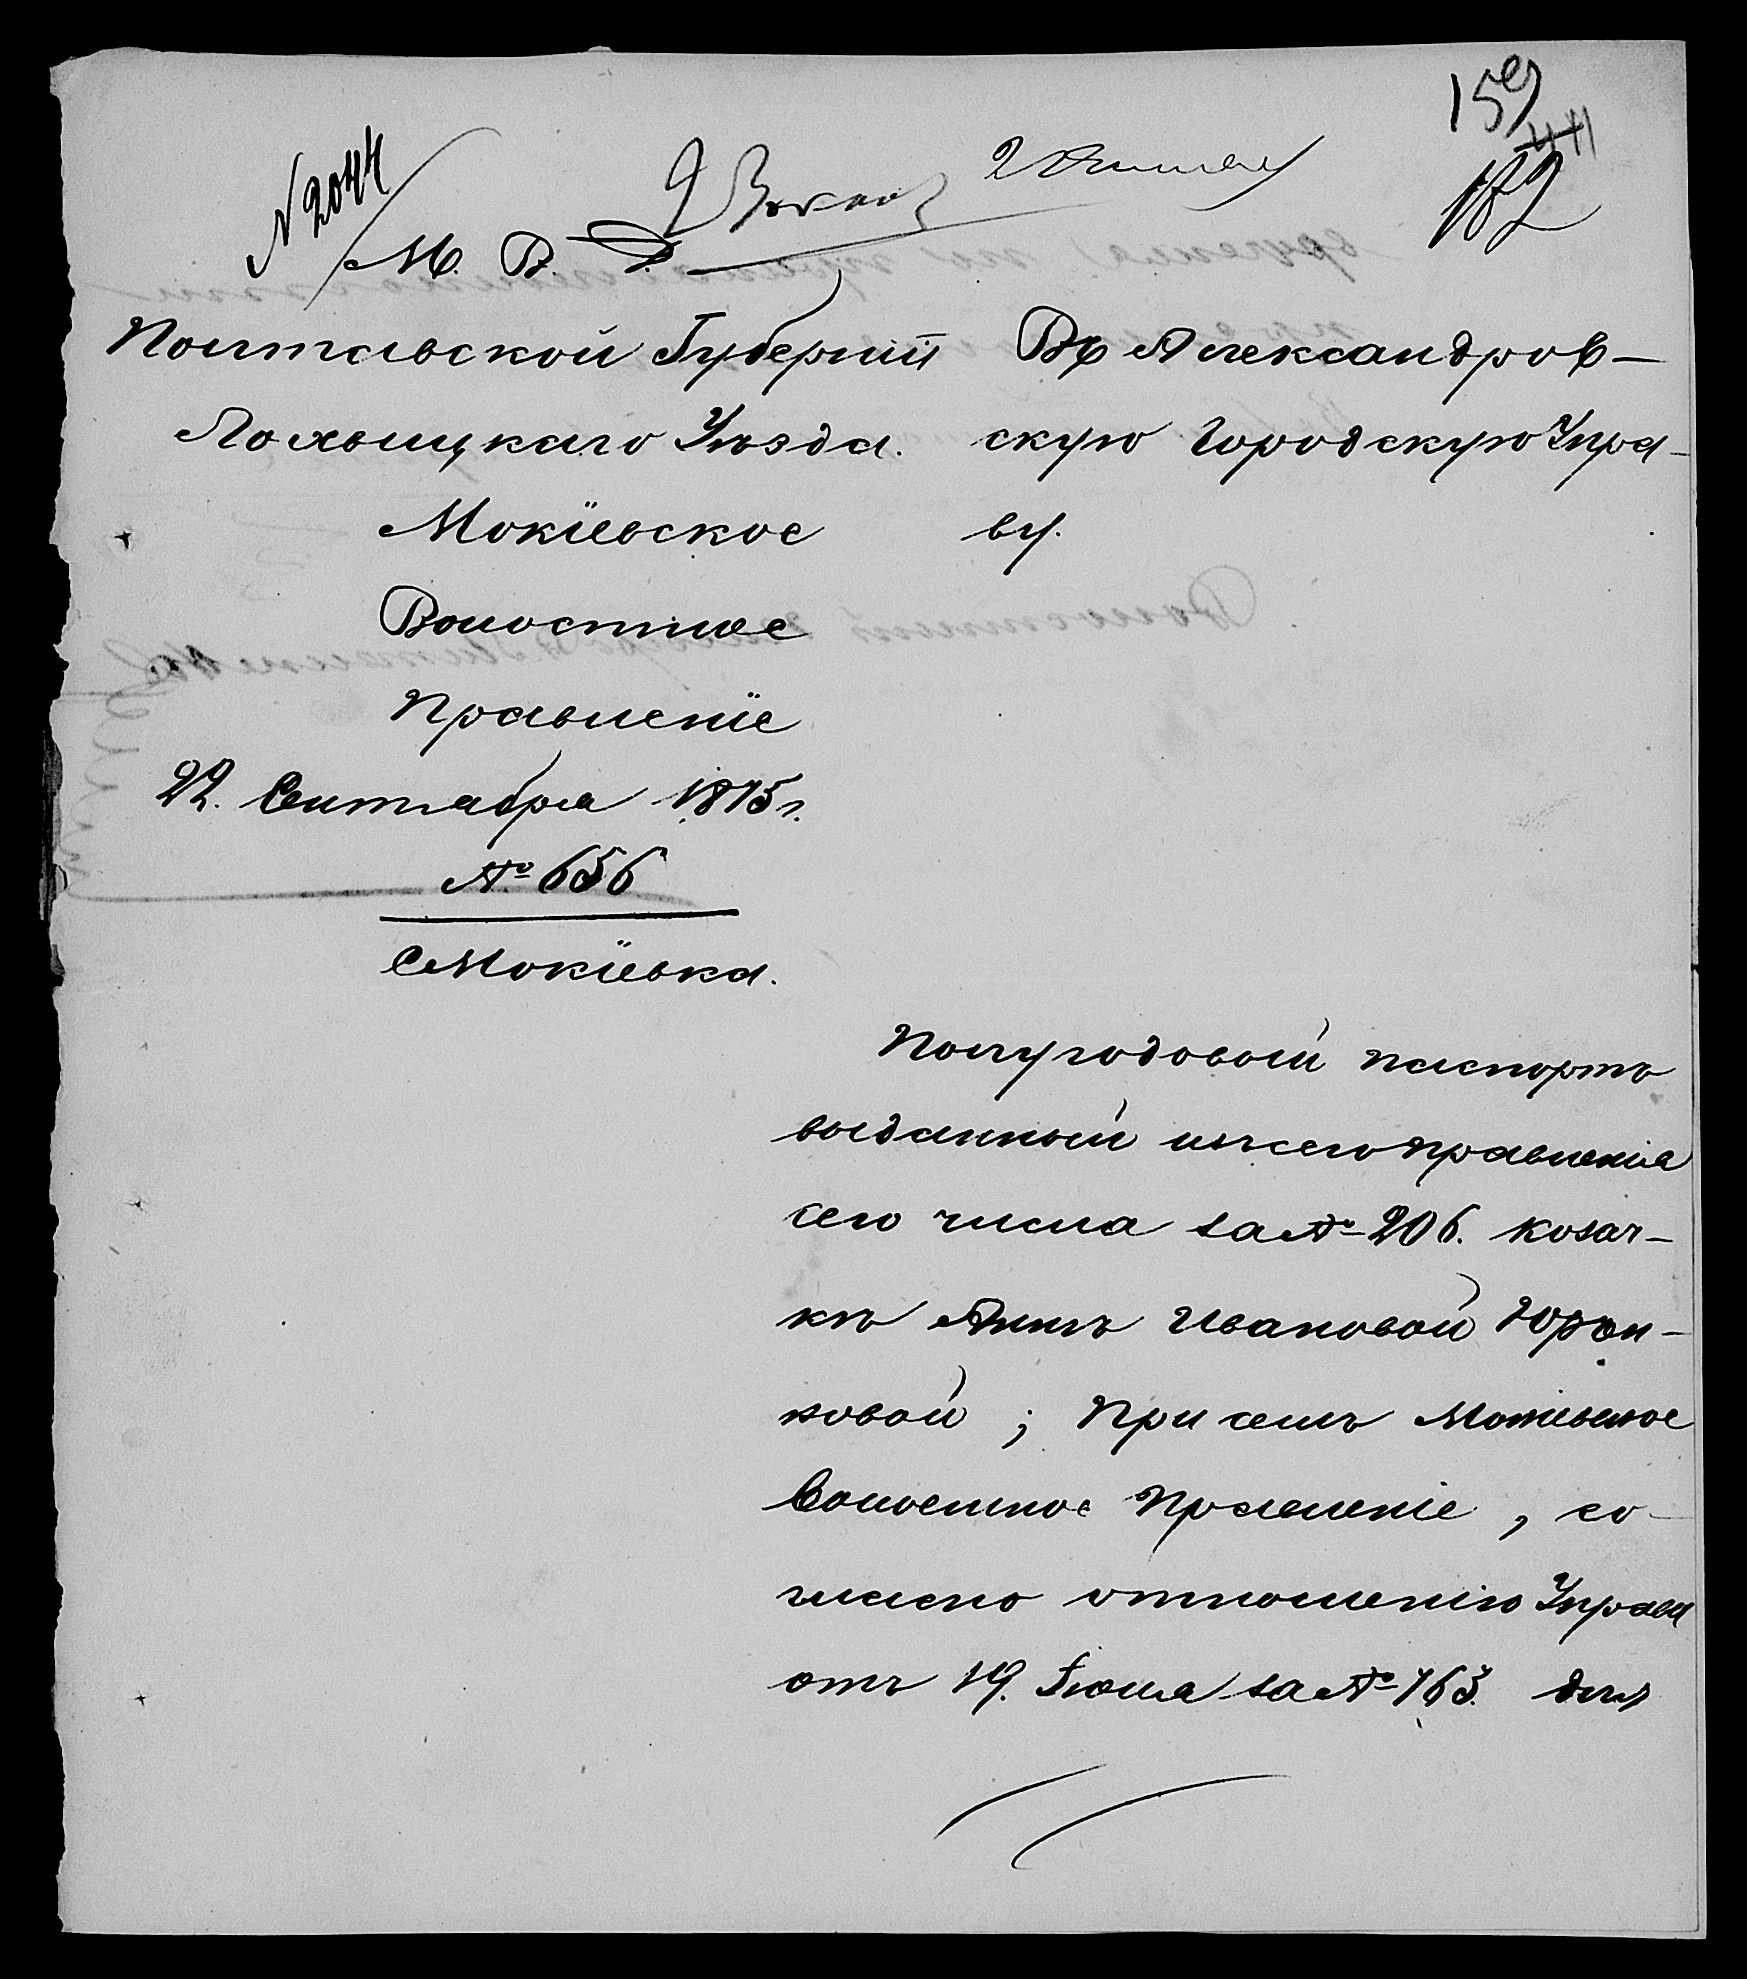 159
441
182
№ 2044
М. В. Д.
Полтавской Губерніи
Лохвицкаго Уѣзда.
Мокіевское
Волостное
Правленіе
22. Сентября 1875 г.
№ 656
С Мокіевка.
Въ Александров-
скую Городскую Упра-
ву.
Полугодовой паспортъ
выданный изъ сего правленія
сего числа за № 206. козач-
кѣ Аннѣ Ивановой Юрчи-
ковой; При семъ Мокіевское
Волостное Правленіе, со-
гласно отношенію Управы
отъ 19. Іюля за № 763. для